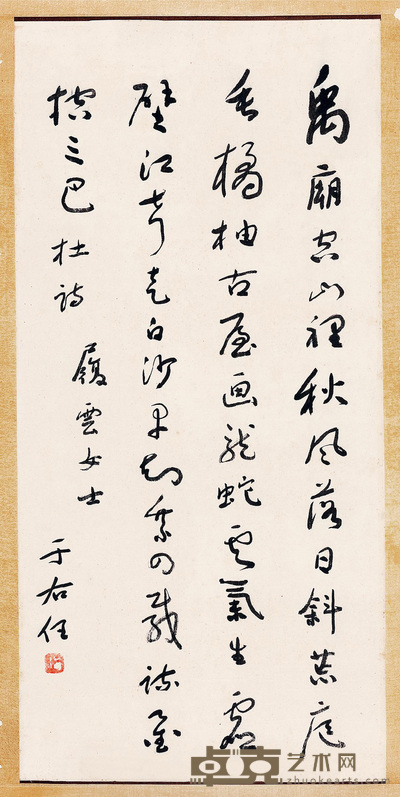 禹廟空山裡秋風落日斜荒庭
垂橘柚古屋画龍蛇雲氣生虛
壁江聲走白沙早知乘四載疏鑿
控三巴 杜詩
履雲女士
于右任
卓克艺术网
zhuokearts.com